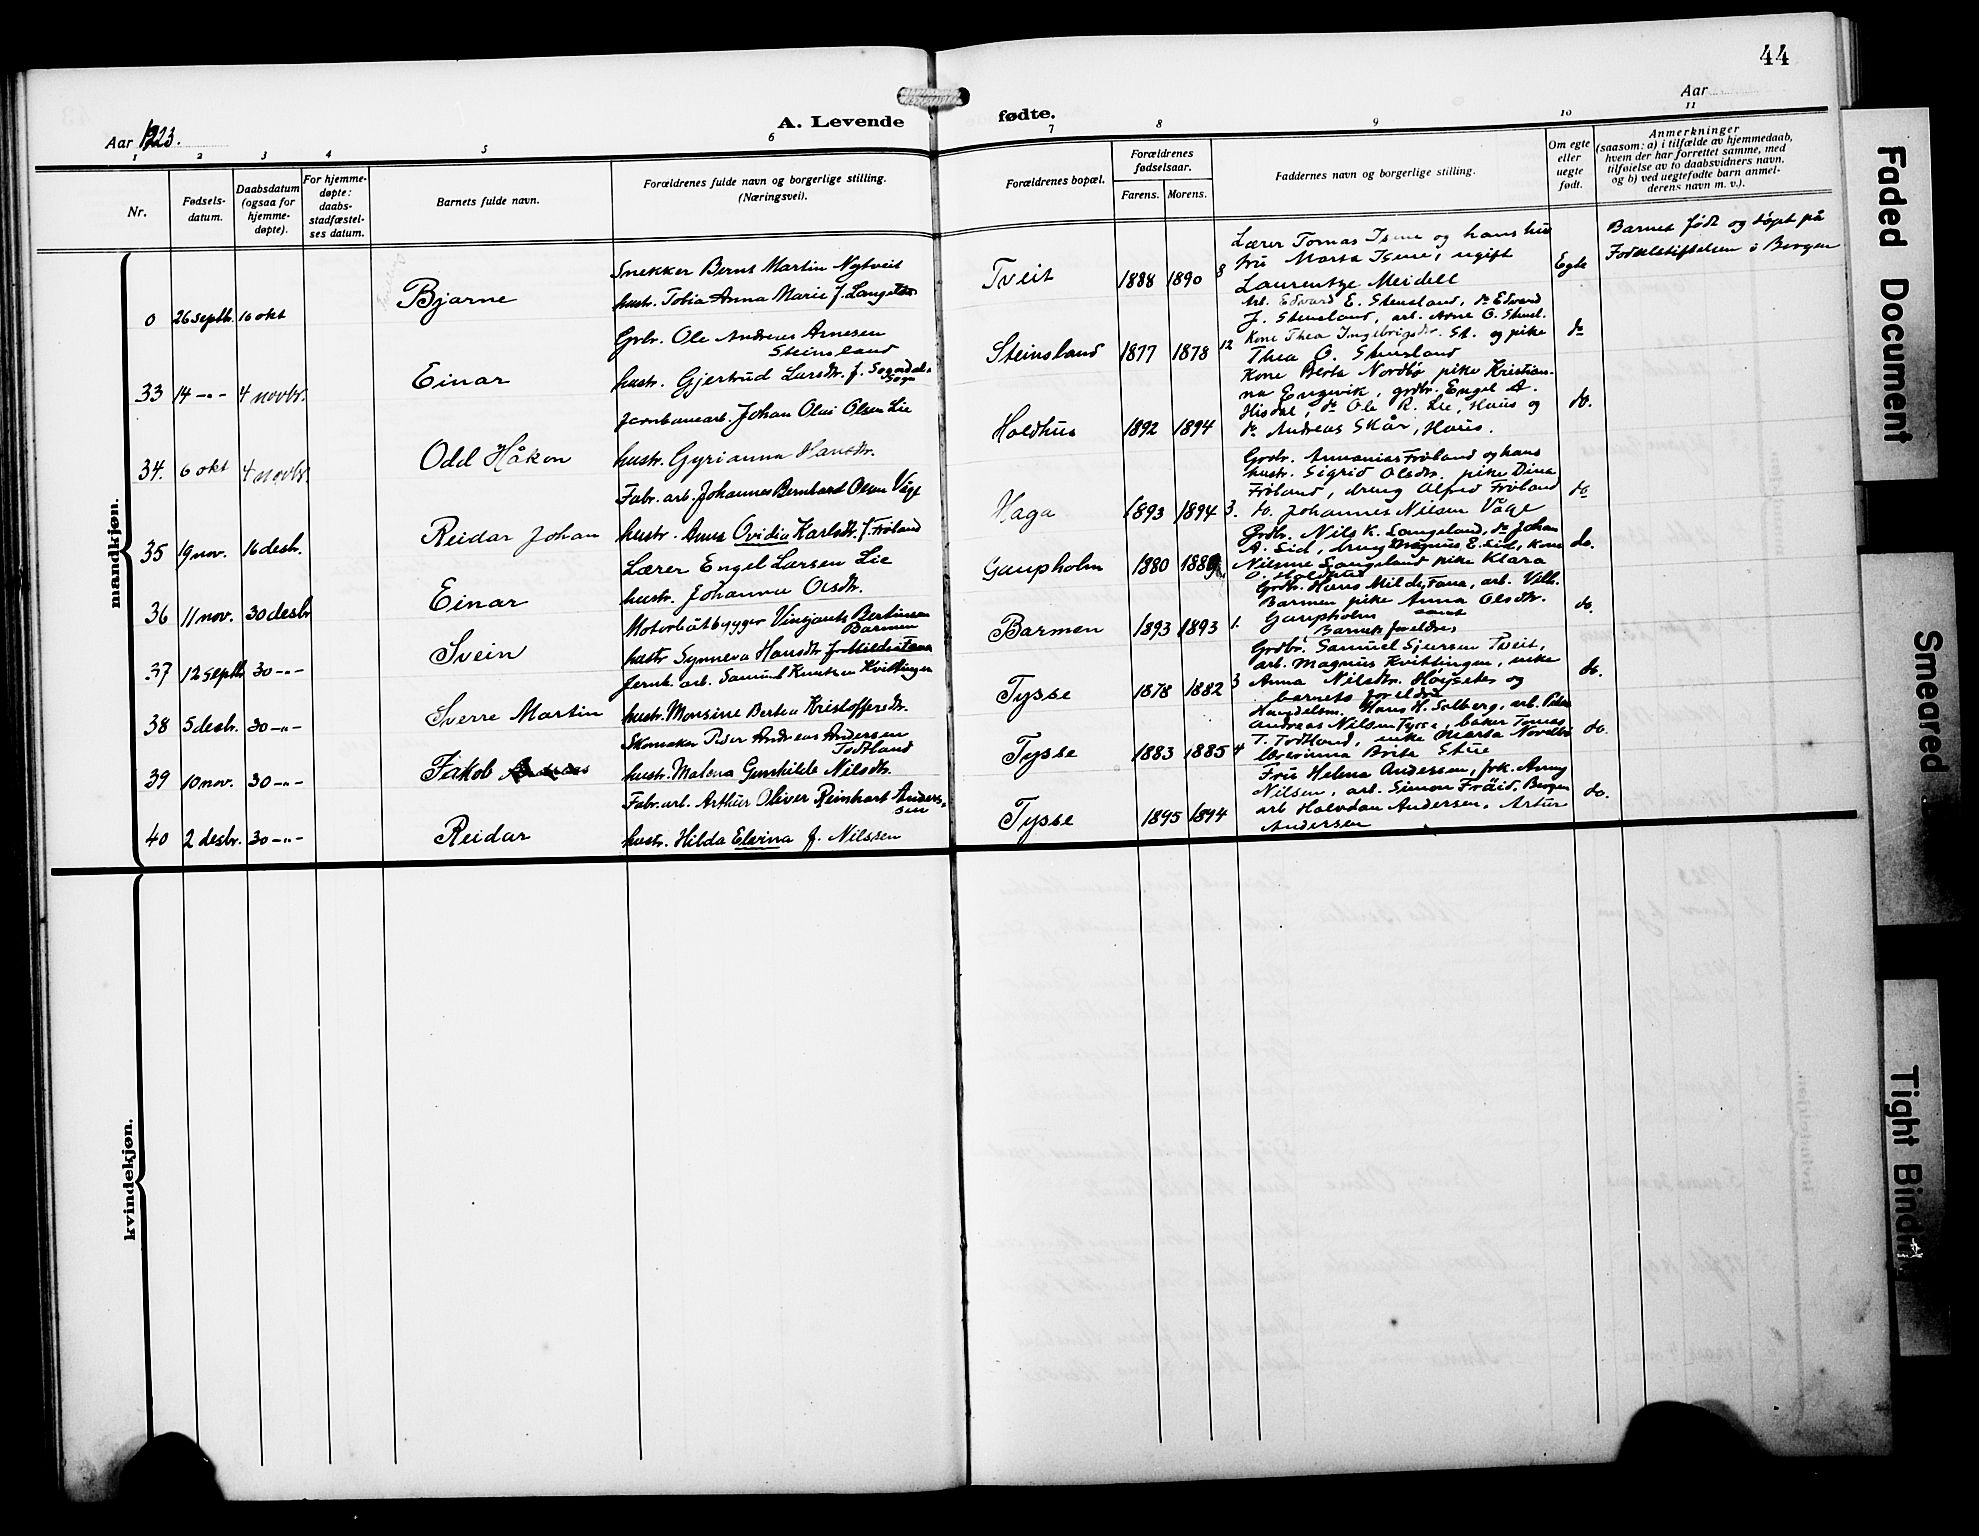 44
Aar 1923.
A. Levende fødte.
Aar
1 2 3 4 5 6 7 8 9 10 11
Nr.
Fødsels-
datum.
Daabsdatum
(ogsaa for
hjemme-
døpte).
For hjemme-
døpte:
daabs-
stadfæstel-
ses datum.
Barnets fulde navn.
Forældrenes fulde navn og borgerlige stilling.
(Næringsvei).
Forældrenes bopæl.
Forældrenes
fødselsaar.
Farens. Morens.
Faddernes navn og borgerlige stilling.
Om egte
eller
uegte
født.
Anmerkninger
(saasom: a) i tilfælde av hjemmedaab,
hvem der har forrettet samme, med
tilføielse av to daabsvidners navn,
og b) ved uegtefødte barn anmel-
derens navn m. v.).
mandkjøn.
0 26 septb. 16 okt
Bjarne
Snekker Bernt Martin Nytveit
hustr. Tobia Anna Marie f. Langeland
Tveit 1888 1890 8
Lærer Tomas Tsene og hans hus
tru Marta Tsene, ugift
Laurentze Meidell
Egte
Barnet født og døpt på
Fødselstiftelsen i Bergen
33 14 -"- 4 novbr.
Einar
Grbr. Ole Andreas Arnesen
Steinsland
hustr. Gjertrud Larsdtr. f. Sogndal i
Sogn
Steinsland 1877 1878 12
Arb. Edvard E. Stensland, do Edvard
J. Stensland, arb. Arne O. Stensl.
Kone Thea Ingebrigtsdtr. St. og pike
Thea O. Stensland
do
34. 6 okt 4 novbr.
Odd Håkon
Jernbanearb. Johan Olai Olsen Lie
hustr. Gyrianna Hansdtr.
Holdhus 1892 1894
Kone Berta Nordbø pike Kristian-
na Engevik, grdbr. Engel A.
Hisdal, do Ole R. Lie, Haus og
do Andreas Skår, Haus.
do.
35 19 nov. 16 desbr.
Reidar Johan
Fabr. arb. Johannes Bernhard Olsen Våge
hustr. Anna Ovidia Karlsdtr. f. Frøland
Haga 1893 1894 3.
Grdbr. Annanias Frøland og hans
hustr. Sigrid Olsdtr, pike Dina
Frøland, dreng Alfred Frøland
do. Johannes Nilsen Våge
do
36 11 nov. 30 desbr
Einar
Lærer Engel Larsen Lie
hustr. Johanna Olsdtr.
Gaupholm 1880 1889
Grdbr. Nils K. Langeland, do Johan
A. Eid, dreng Magnus E. Eid, kone
Nilsine Langeland pike Klara
O. Holdhus
do.
37 12 septb 30 -"-
Svein
Motorbåtbygger Vinjants Bertinsen
Barmen
hustr Synneva Hansdtr f. Milde i Fana
Barmen 1893 1893 1.
Grdbr. Hans Milde, Fana, arb. Vilh.
Barmen pike Anna Olsdtr.
Gaupholm samt
Barnets foreldre
do.
38 5 desbr. 30 -"-
Sverre Martin
Jernb. arb. Samuel Knutsen Kvittingen
hustr. Monsine Bertea Kristoffersdtr.
Tysse 1878 1882 3
Grdbr. Samuel Sjursen Tveit,
arb. Magnus Kvittingen, enke
Anna Nilsdtr. Høysæter og
barnets foreldre
do.
39 10 nov. 30 -"-
Jakob Andreas
Skomaker Peder Andreas Andersen
Todtland
hustr. Malena Gunhilda Nilsdtr.
Tysse 1883 1885 4
Handelsm. Hans H. Solberg, arb. Peder
Andreas Nilsen Tysse, baker Tomas
T. Todtland, enke Marta Nordbø
lærerinna Brita Stue
do.
40 2 desbr. 30 -"-
Reidar
Fabr. arb. Arthur Oliver Reinhart Anders-
sen
hustr. Hilda Elvina f. Nilssen
Tysse 1895 1894
Fru Helena Andersen, frk. Anny
Nilsen, arb. Simon Frøid, Bergen
arb Halvdan Andersen. Artur
Andersen
do.
kvindekjøn.
Faded Document
Smeared
Tight Binding